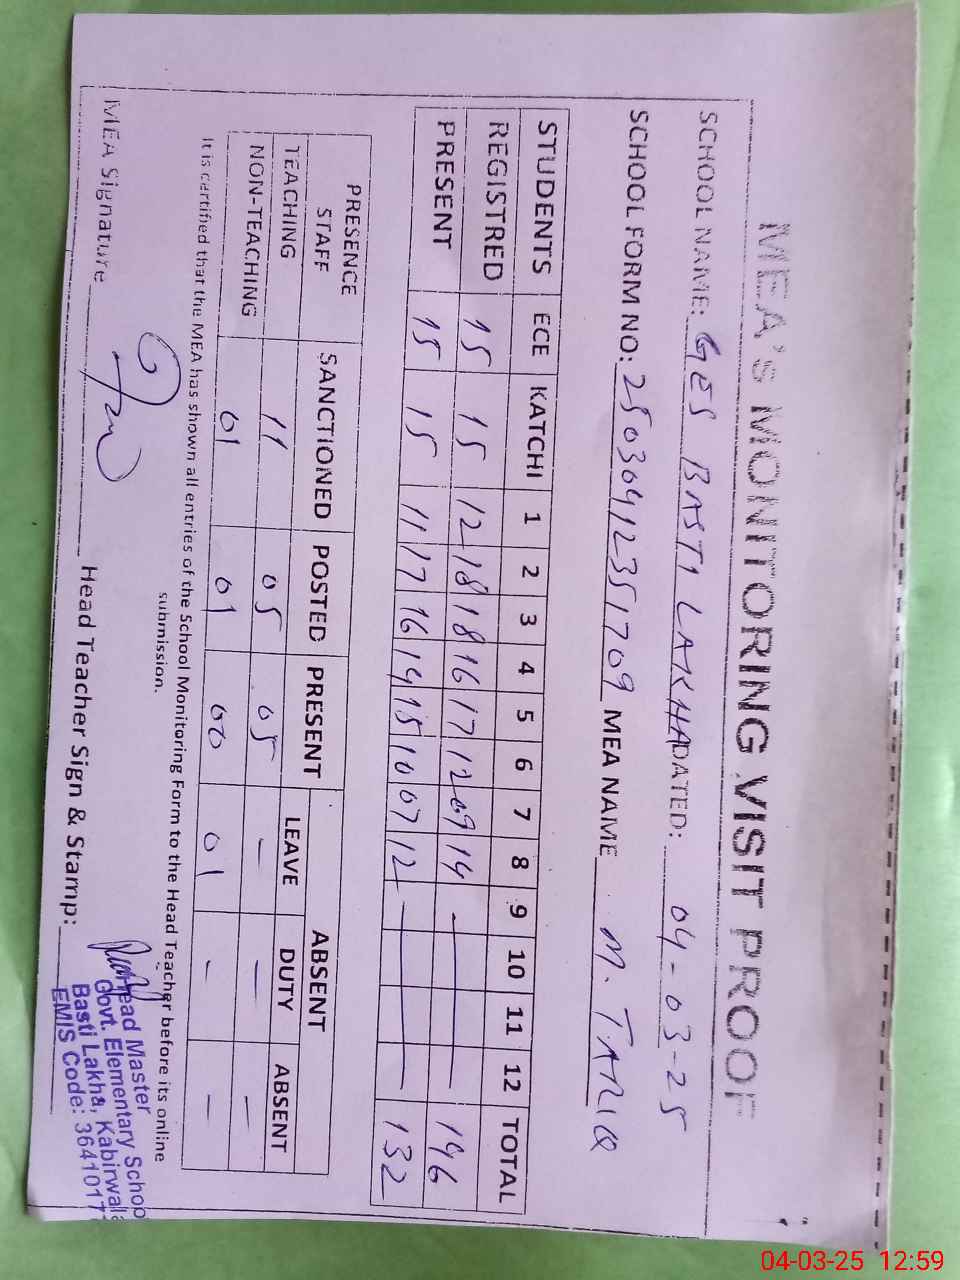 MEA'S MONITORING VISIT PROOF
SCHOOL NAME: GES BASTI LAKHA DATED: 04-03-25
SCHOOL FORM NO: 25030412351709 MEA NAME M. TARIQ
STUDENTS ECE KATCHI 1 2 3 4 5 6 7 8 9 10 11 12 TOTAL
REGISTRED 15 15 12 18 18 16 17 12 09 14 - 146
PRESENT 15 15 11 17 16 14 15 10 07 12 - 132
PRESENCE STAFF SANCTIONED POSTED PRESENT ABSENT
LEAVE DUTY ABSENT
TEACHING 11 05 05 - - -
NON-TEACHING 01 01 00 01 - -
It is certified that the MEA has shown all entries of the School Monitoring Form to the Head Teacher before its online
submission.
MEA Signature Head Teacher Sign & Stamp:
Head Master
Govt. Elementary School
Basti Lakha, Kabirwala
EMIS Code: 3641017
04-03-25 12:59